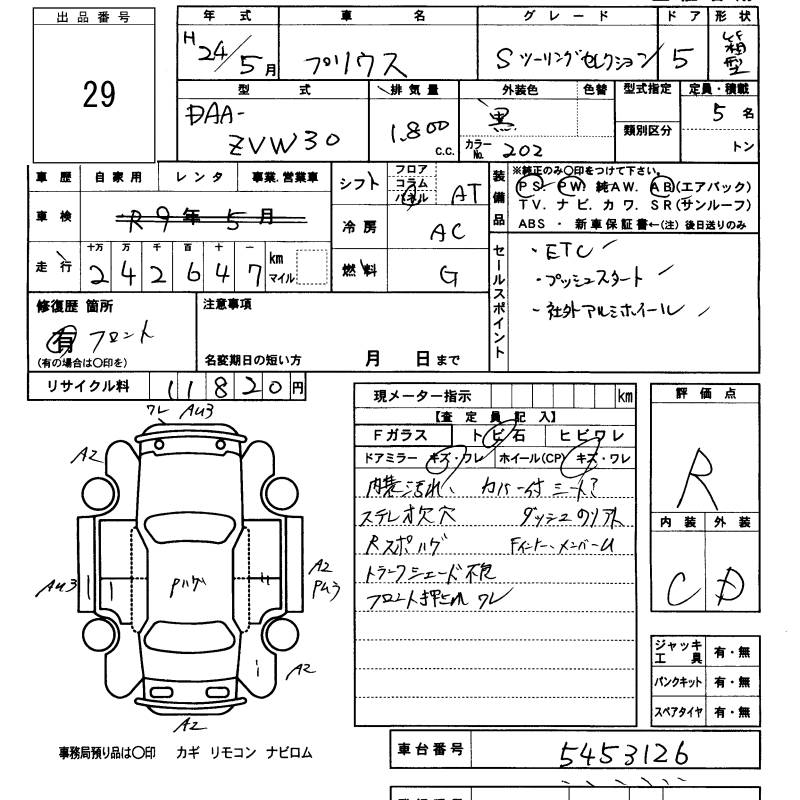 出品番号
29
年式 車名 グレード ドア 形状
H24/5月 プリウス Sツーリングセレクション 5 箱型
型式 排気量 外装色 色替 型式指定 定員・積載
DAA-ZVW30 1.800 c.c. 黒 カラーNo. 202 類別区分 5名 トン
車歴 自家用 レンタ 事業、営業車
シフト フロア コラム パネル AT
装備品 ※純正のみ○印をつけて下さい。
PS PW 純AW. AB(エアバック)
TV. ナビ. カワ. SR(サンルーフ)
ABS ・ 新車保証書←(注) 後日送りのみ
車検 R9年5月
冷房 AC
走行 十万 万 千 百 十 一
242647 km マイル
燃料 G
セールスポイント
・ETC
・プッシュスタート
・社外アルミホイール
修復歴 箇所
有 フロント
(有の場合は○印を)
注意事項
名変期日の短い方 月 日まで
リサイクル料 11820円
現メーター指示 km
【査定員記入】
Fガラス トビ石 ヒビワレ
ドアミラー キズ・ワレ ホイール(CP) キズ・ワレ
内装汚れ、 カバー付シート?
ステレオ欠穴
トランクシェード不抱
フロント押され ワレ
評価点
R
内装 外装
C D
ワレ AU3
A2
AU3
Pハゲ
A2
PU3
A2
A2
ジャッキ工具 有・無
パンクキット 有・無
スペアタイヤ 有・無
事務局預り品は○印 カギ リモコン ナビロム
車台番号 5453126